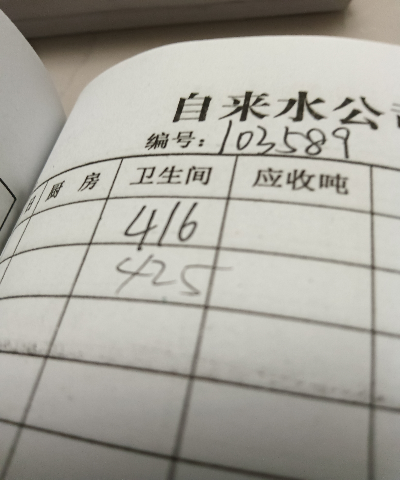 自来水公
编号：103589
厨房 卫生间 应收吨
416
425